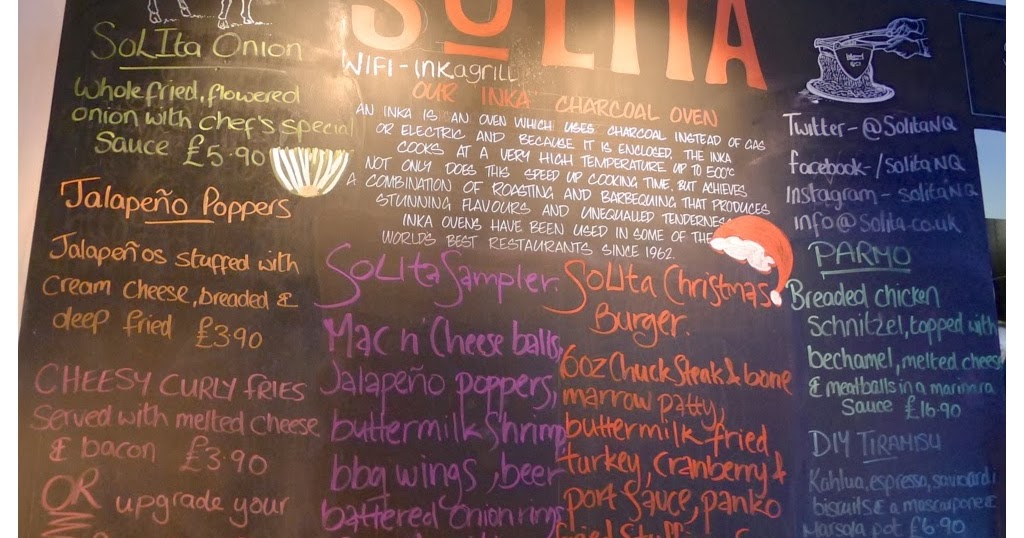 SOLITA
WIFI - INKAGRILL
OUR INKA CHARCOAL OVEN
AN INKA IS AN OVEN WHICH USES CHARCOAL INSTEAD OF GAS
OR ELECTRIC AND BECAUSE IT IS ENCLOSED, THE INKA
COOKS AT A VERY HIGH TEMPERATURE UP TO 500°C
NOT ONLY DOES THIS SPEED UP COOKING TIME, BUT ACHIEVES
A COMBINATION OF ROASTING AND BARBEQUING THAT PRODUCES
STUNNING FLAVOURS AND UNEQUALLED TENDERNESS
INKA OVENS HAVE BEEN USED IN SOME OF THE
WORLDS BEST RESTAURANTS SINCE 1962.
SOLITA Onion
Whole fried, flowered
onion with chef's special
Sauce £5.90
Jalapeño Poppers
Jalapeños stuffed with
cream cheese, breaded &
deep fried £3.90
CHEESY CURLY FRIES
Served with melted cheese
& bacon £3.90
OR upgrade your
SOLITA Sampler.
Mac n' Cheese balls,
Jalapeño poppers,
buttermilk Shrimp
bbq wings, beer
battered onion rings
SOLITA Christmas
Burger.
6oz Chuck Steak & bone
marrow patty,
buttermilk fried
turkey, cranberry &
port sauce, panko
fried Stuff
Twitter - @SolitaNQ
facebook - /SolitaNQ
Instagram - solitaNQ
info@Solita.co.uk
PARMO
Breaded chicken
Schnitzel, topped with
bechamel, melted cheese
& meatballs in a marinara
Sauce £16.90
DIY TIRAMISU
Kahlua, espresso, savoiardi
biscuits & a mascarpone &
Marsala pot £6.90